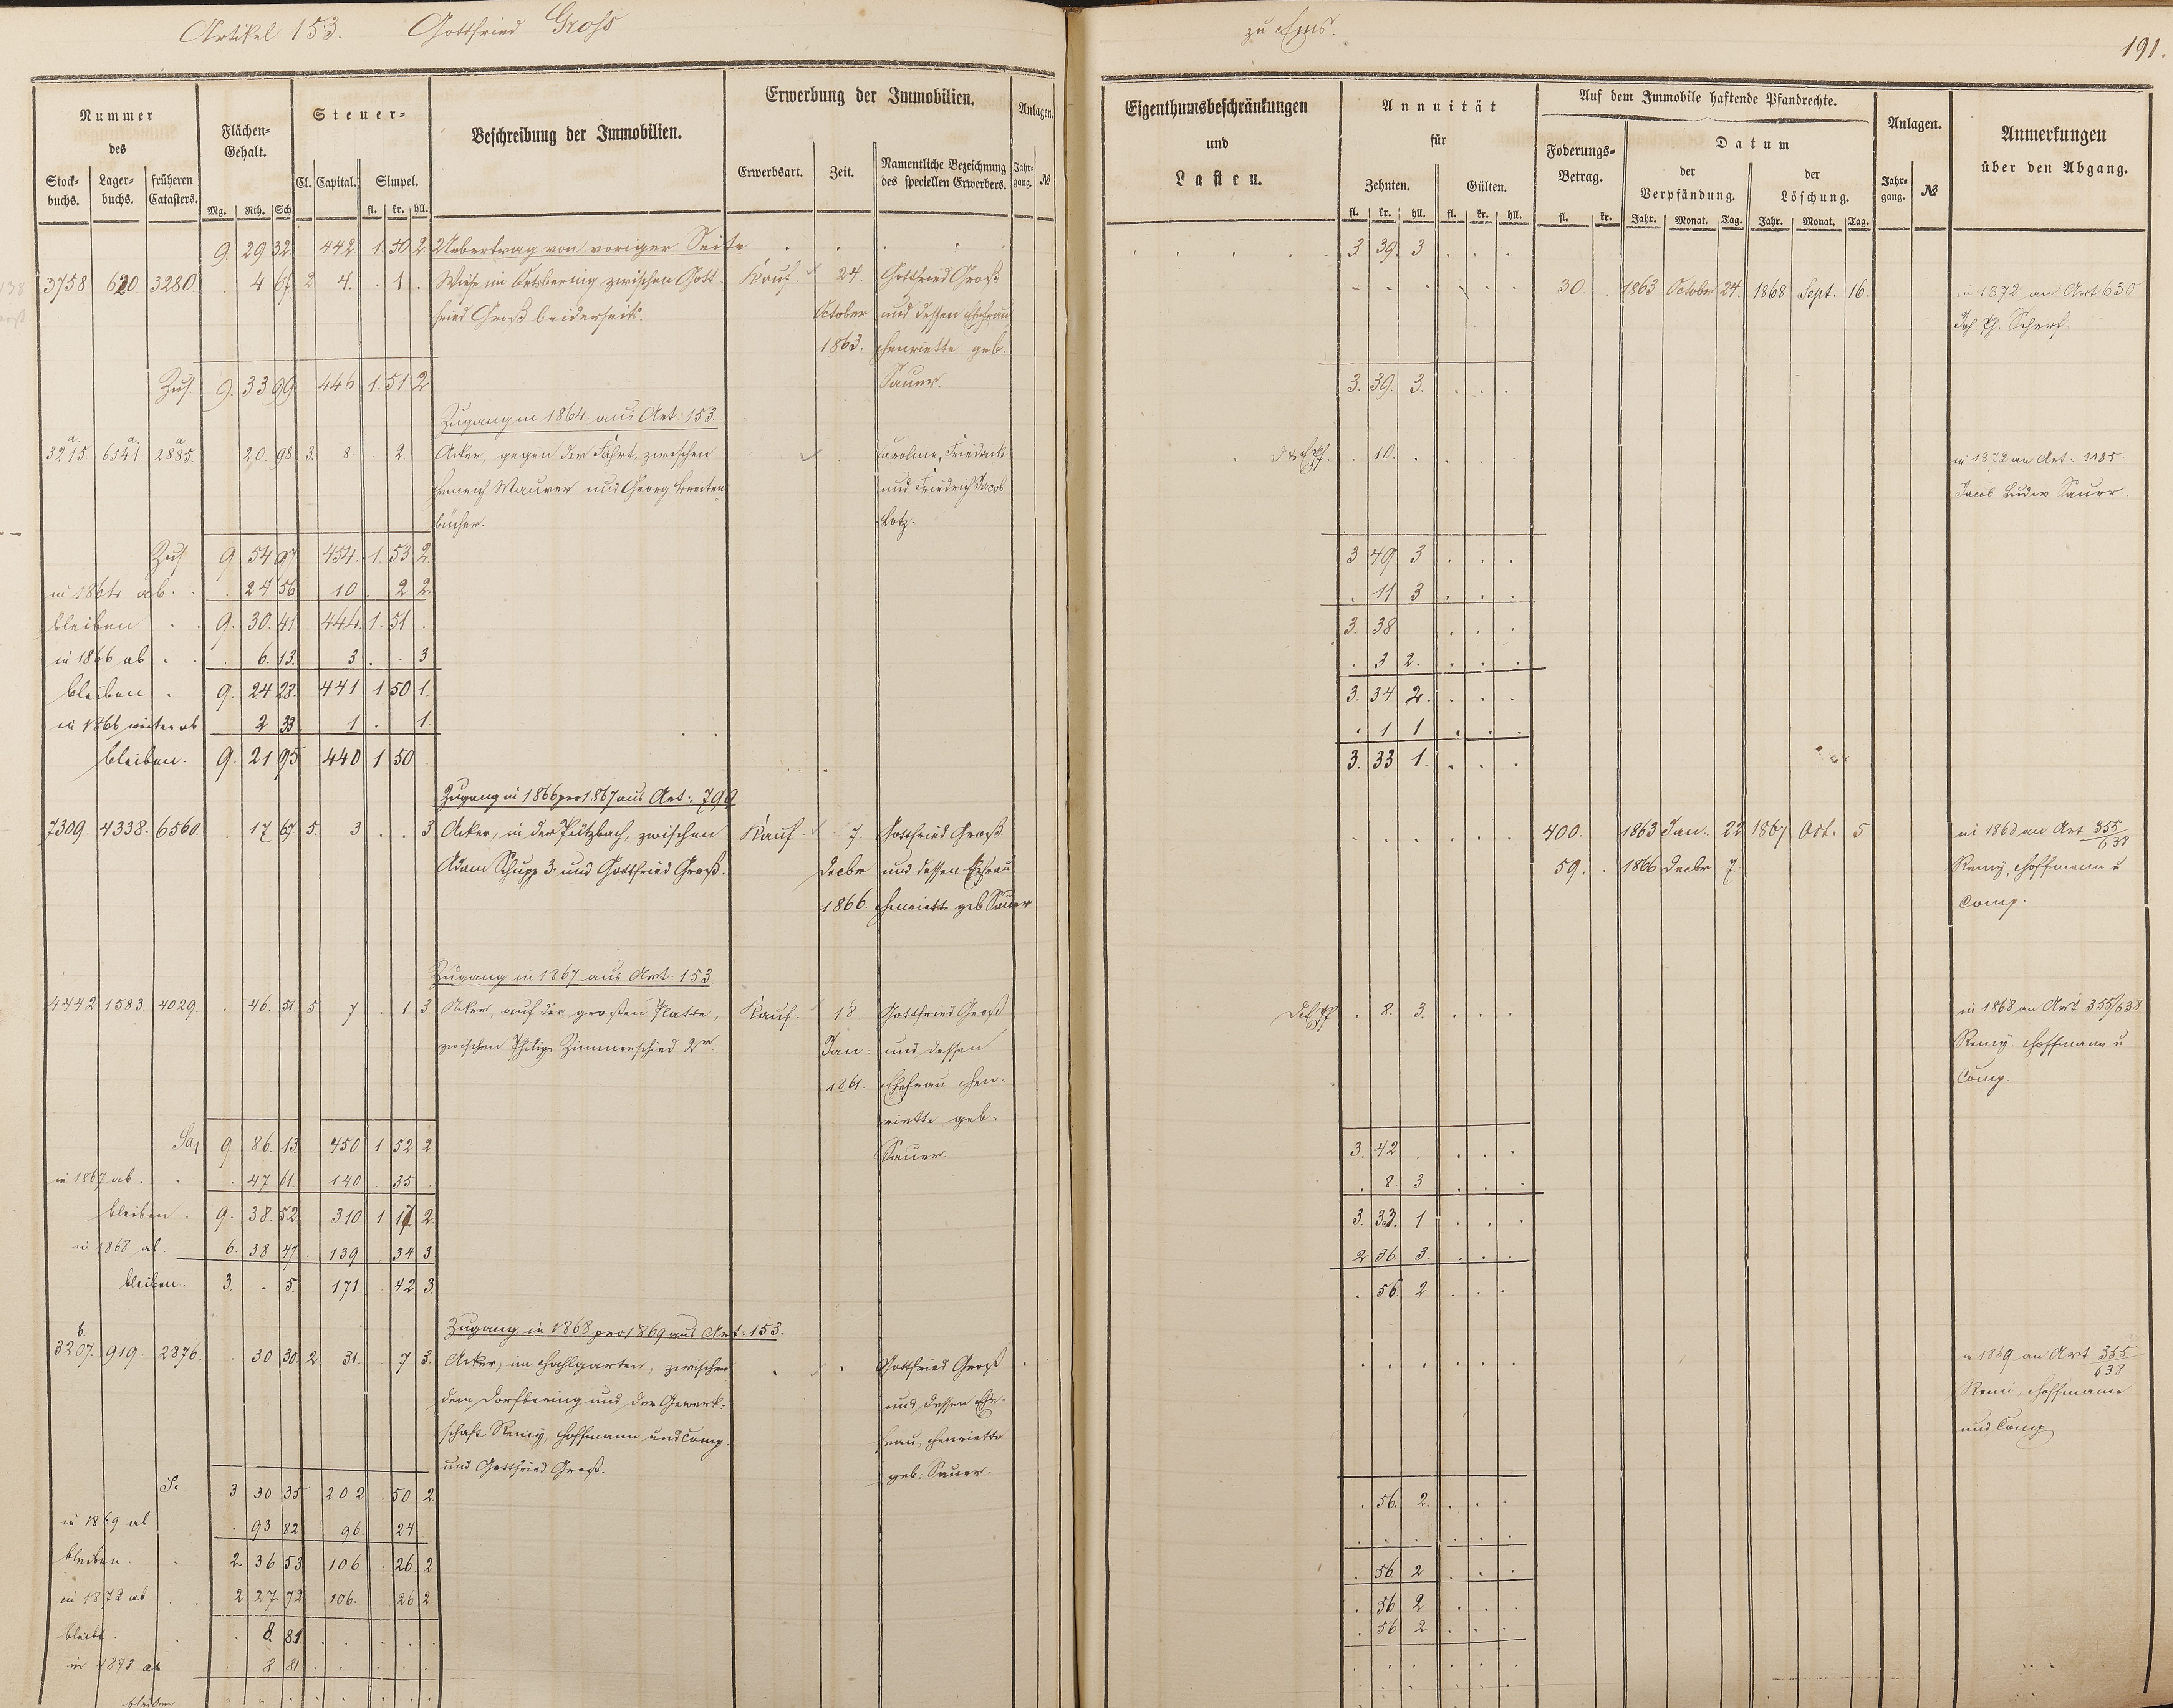 Artikel 153. Gottfried Gross
zu Ems.
191.
Nummer des
Stockbuchs. Lagerbuchs. früheren Catasters.
Flächen-Gehalt.
Mg. Rth. Sch
Steuer-
Cl. Capital. Simpel.
fl. kr. hll.
Beschreibung der Immobilien.
Erwerbung der Immobilien.
Erwerbsart. Zeit. Namentliche Bezeichnung des speciellen Erwerbers.
Anlagen.
Jahrgang. №
Eigenthumsbeschränkungen
und
Lasten.
Annuität
für
Zehnten. Gülten.
fl. kr. hll. fl. kr. hll.
Auf dem Immobile haftende Pfandrechte.
Foderungs-Betrag.
fl. kr.
Datum
der Verpfändung. der Löschung.
Jahr. Monat. Tag. Jahr. Monat. Tag.
Anlagen.
Jahrgang. №
Anmerkungen
über den Abgang.
9. 29 32 442 1. 50 2 Uebertrag von voriger Seite 3 39. 3
3758 620 3280. 4 67 2 4. 1. Wiese im Ortsbering zwischen Gott Kauf. 24. Gottfried Groß 30. 1863 October 24. 1868 Sept. 16. in 1872 an Art 630
fried Groß beiderseits. October und dessen Ehefrau Joh. Ph. Scherf.
1863. Henriette geb.
Zus. 9. 33 99 446 1. 51 2 Sauer. 3. 39. 3.
Zugang in 1864 aus Art. 153.
3215.a. 6541.a. 2885.a. 20. 98 3. 8. 2 Acker, gegen der Fahrt, zwischen Caroline, Friedricke 10. in 1872 an Art. 1185
Heinrich Maurer und Georg Breiten und Friedrich Jacob Jacob Ludw Sauer.
bücher. Lotz.
Zus 9 54 97 454. 1. 53 2. 3 49 3
in 1864 ab. 24 56 10. 2 2. 11 3
bleiben 9. 30. 41. 444. 1. 51. 3. 38
in 1866 ab. 6. 13. 3. 3 3 2.
bleiben. 9. 24 28. 441 1 50 1. 3. 34 2.
in 1866 weiter ab 2 33 1. 1. 1 1
bleiben. 9. 21 95 440 1 50 3. 33 1.
Zugang in 1866 pro 1867 aus Art. 799.
7309. 4338. 6560. 17 67 5. 3. 3 Acker, in der Pützbach, zwischen Kauf 7. Gottfried Groß 400. 1863 Jan. 22 1867 Oct. 5 in 1868 an Art 355/638
Adam Schupp 3. und Gottfried Groß. Decbr und dessen Ehefrau 59. 1866 Decbr 7 Remy, Hoffmann u
1866. Henriette geb Sauer Comp.
Zugang in 1867 aus Art. 153.
4442 1583. 4029. 46. 51. 5 7. 1 3. Acker, auf der großen Platte, Kauf. 18 Gottfried Groß 8. 3. in 1868 an Art 355/638
zwischen Philipp Zimmerschied 2r. Jan. und dessen Remy Hoffmann u
1861. Ehefrau Hen- Comp.
riette geb.
Sa, 9 86. 13. 450 1 52 2. Sauer. 3. 42
in 1867 ab. 47 61 140 35 8. 3
bleiben. 9. 38. 52. 310 1 17 2. 3. 33. 1
in 1868 ab. 6. 38 47 139 34 3. 2 36. 3.
bleiben. 3. 5. 171 42 3. 56. 2
Zugang in 1868 pro 1869 aus Art. 153.
3207.b. 919. 2876. 30 30. 2. 31. 7 3. Acker, im Hahlgarten, zwischen Gottfried Groß in 1869 an Art 355/638
dem Dorfbering und der Gewerk- und dessen Ehe- Remi, Hoffmann
schaft Remy, Hoffmann und Comp. frau, Henriette und Comp
und Gottfried Groß. geb. Sauer.
S. 3 30 35 202. 50 2. 56. 2.
in 1869 ab 93 82 96. 24
bleiben. 2. 36 53 106 26. 2 56. 2
in 1872 ab 2 27. 72 106. 26 2. 56 2
bleibt. 8. 81 56 2
in 1873 ab 8 81
bleiben